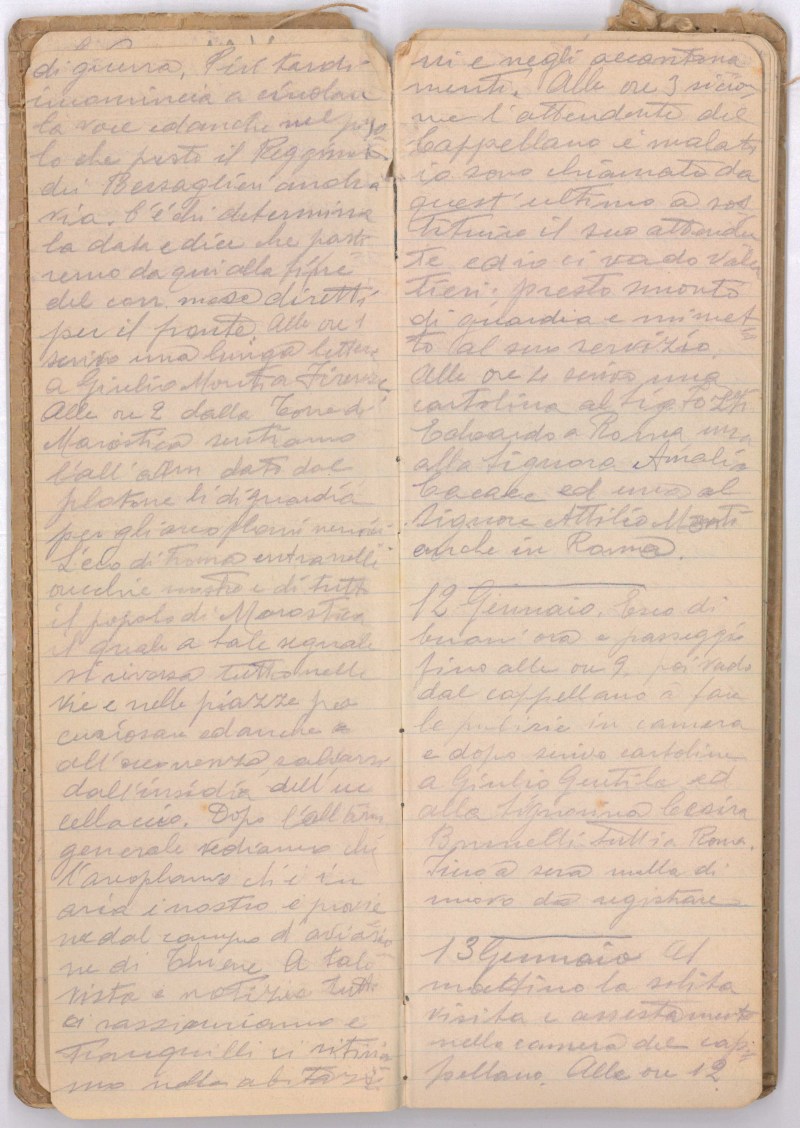 di guerra. Più tardi
incomincia a circolare
la voce ed anche nel popo
lo che presto il Reggimento
dei Bersaglieri andrà
via. C'è chi determina
la data e dice che parti
remo da qui alla fine
del corr. mese diretti
per il fronte. Alle ore 1
scrivo una lunga lettera
a Giulio Monti a Firenze.
Alle ore 2 dalla Torre di
Marostica sentiamo
l'all'arm dato dal
plotone li di guardia
per gli aeroplani nemici
L'eco di tromba entra nelli
orecchie nostre e di tutto
il popolo di Marostica
il quale a tale segnale
si riversa tutto nelle
vie e nelle piazze per
curiosare ed anche
all'occorenza salvarsi
dall'insidia dell'uc
cellaccio. Dopo l'all'arm
generale vediamo che
l'aeroplano che è in
aria è nostro e provie
ne dal campo d'aviazio
ne di Thiene. A tale
vista e notizie tutti
ci rassicuriamo e
tranquilli ci ritiria
mo nelle abitazio
ni e negli accantona
menti. Alle ore 3 sicco
me l'attendente del
Cappellano è malato
io sono chiamato da
quest'ultimo a sos
tituire il suo attenden
te ed io ci vado volen
tieri: presto smonto
di guardia e mi met-
to al suo servizio.
Alle ore 4 scrivo una
cartolina al Sig.
Edoardo a Roma una
alla Signora Amalia
ed una al
Signore Attilio Monti
anche in Roma.
12 Gennaio. Esco di
buon'ora e passeggio
fino alle ore 9. poi vado
dal cappellano a fare
le pulizie in camera
e dopo scrivo cartoline
a Giulio Gentile ed
alla Signorina Cesira
Brunelli tutti a Roma.
Fino a sera nulla di
nuovo da registrare
13 Gennaio Al
mattino la solita
visita e assestamento
nella camera del cap-
pellano. Alle ore 12